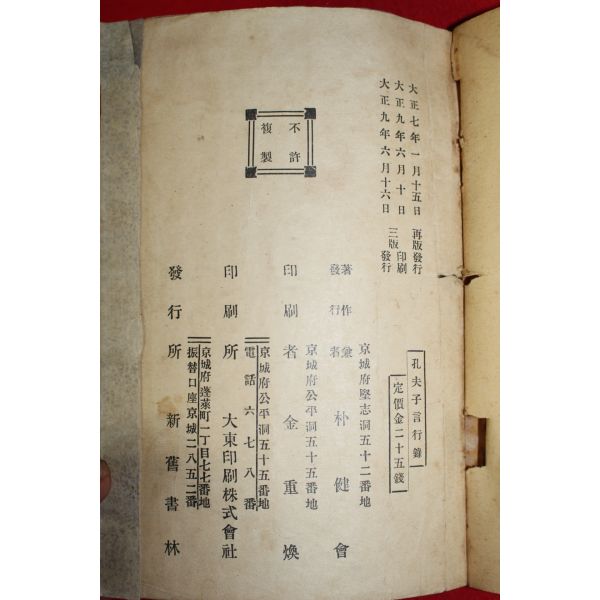 大正七年一月十五日 再版發行
大正九年六月十日 三版印刷
大正九年六月十六日 三版發行
不許
複製
孔夫子言行錄
定價金二十五錢
京城府堅志洞五十二番地
著作兼發行者 朴健會
京城府公平洞五十五番地
印刷者 金重煥
京城府公平洞五十五番地
電話六七八番
印刷所 大東印刷株式會社
京城府蓬萊町一丁目七七番地
振替口座京城二八五二番
發行所 新舊書林